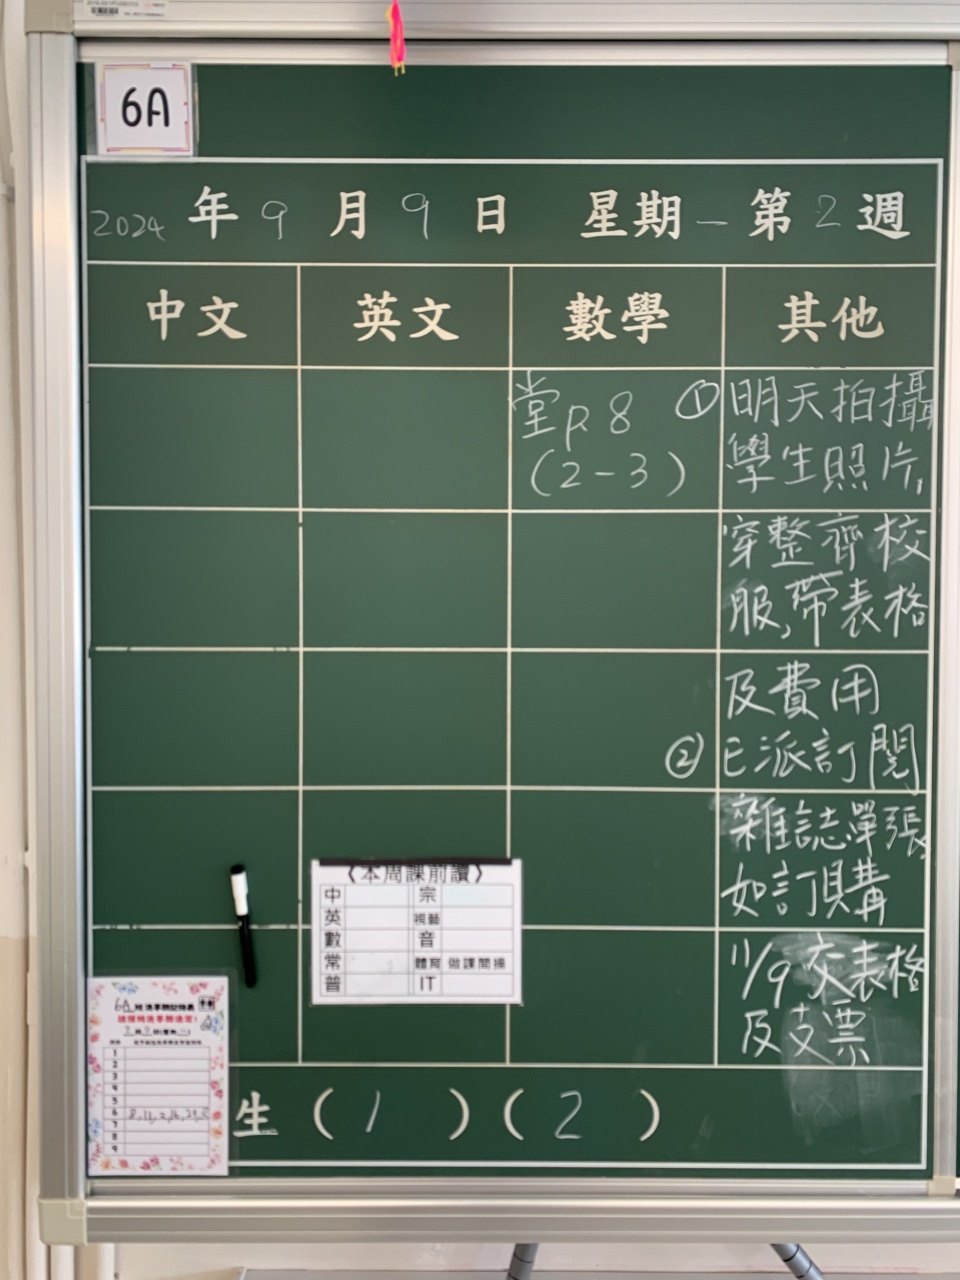 6A
2024 年 9 月 9 日 星期 一 第 2 週
中文 英文 數學 其他
堂 P.8
(2-3)
① 明天拍攝
學生照片,
穿整齊校
服,帶表格
及費用
② 已派訂閱
雜誌單張,
如訂購
11/9 交表格
及支票
〈本周課前讀〉
中 宗
英 視藝
數 音
常 體育 做課間操
普 IT
6A
1
2
3
4
5
6
7
8
9
生 ( 1 ) ( 2 )